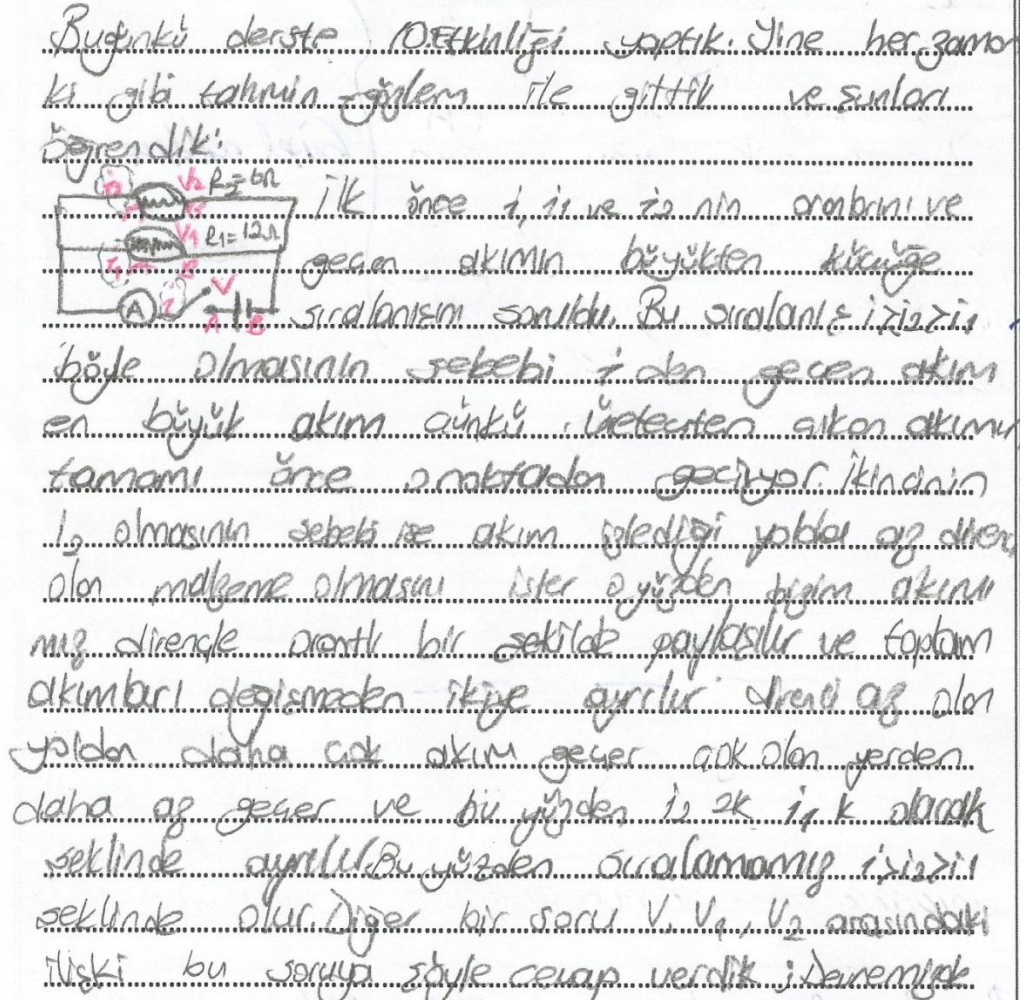 Bugünkü derste 10.Etkinliği yaptık. Yine her zaman
ki gibi tahmin-gözlem ile gittik ve şunları
öğrendik:
i2 V2 R2=6Ω
V1 R1=12Ω
i1
A i V
A B
ilk önce i, i1 ve i2 nin oranlarını ve
geçen akımın büyükten küçüğe
sıralanışım soruldu. Bu sıralanış i>i2>i1
böyle olmasının sebebi i den geçen akım
en büyük akım çünkü üreteçten çıkan akımın
tamamı önce o noktadan geçiyor. İkincinin
I2 olmasının sebebi ise akım izlediği yolda az direnç
olan malzeme olmasını ister o yüzden bizim akımı
mız dirençle orantlı bir şekilde paylaşılır ve toplam
akımları değişmeden ikiye ayrılır direnci az olan
yoldan daha çok akım geçer çok olan yerden
daha az geçer ve bu yüzden i2 2k i1 k olarak
şeklinde ayrılır. Bu yüzden sıralamamız i>i2>i1
şeklinde olur. Diğer bir soru V, V1, V2 arasındaki
ilişki bu soruya şöyle cevap verdik ; Devremizde